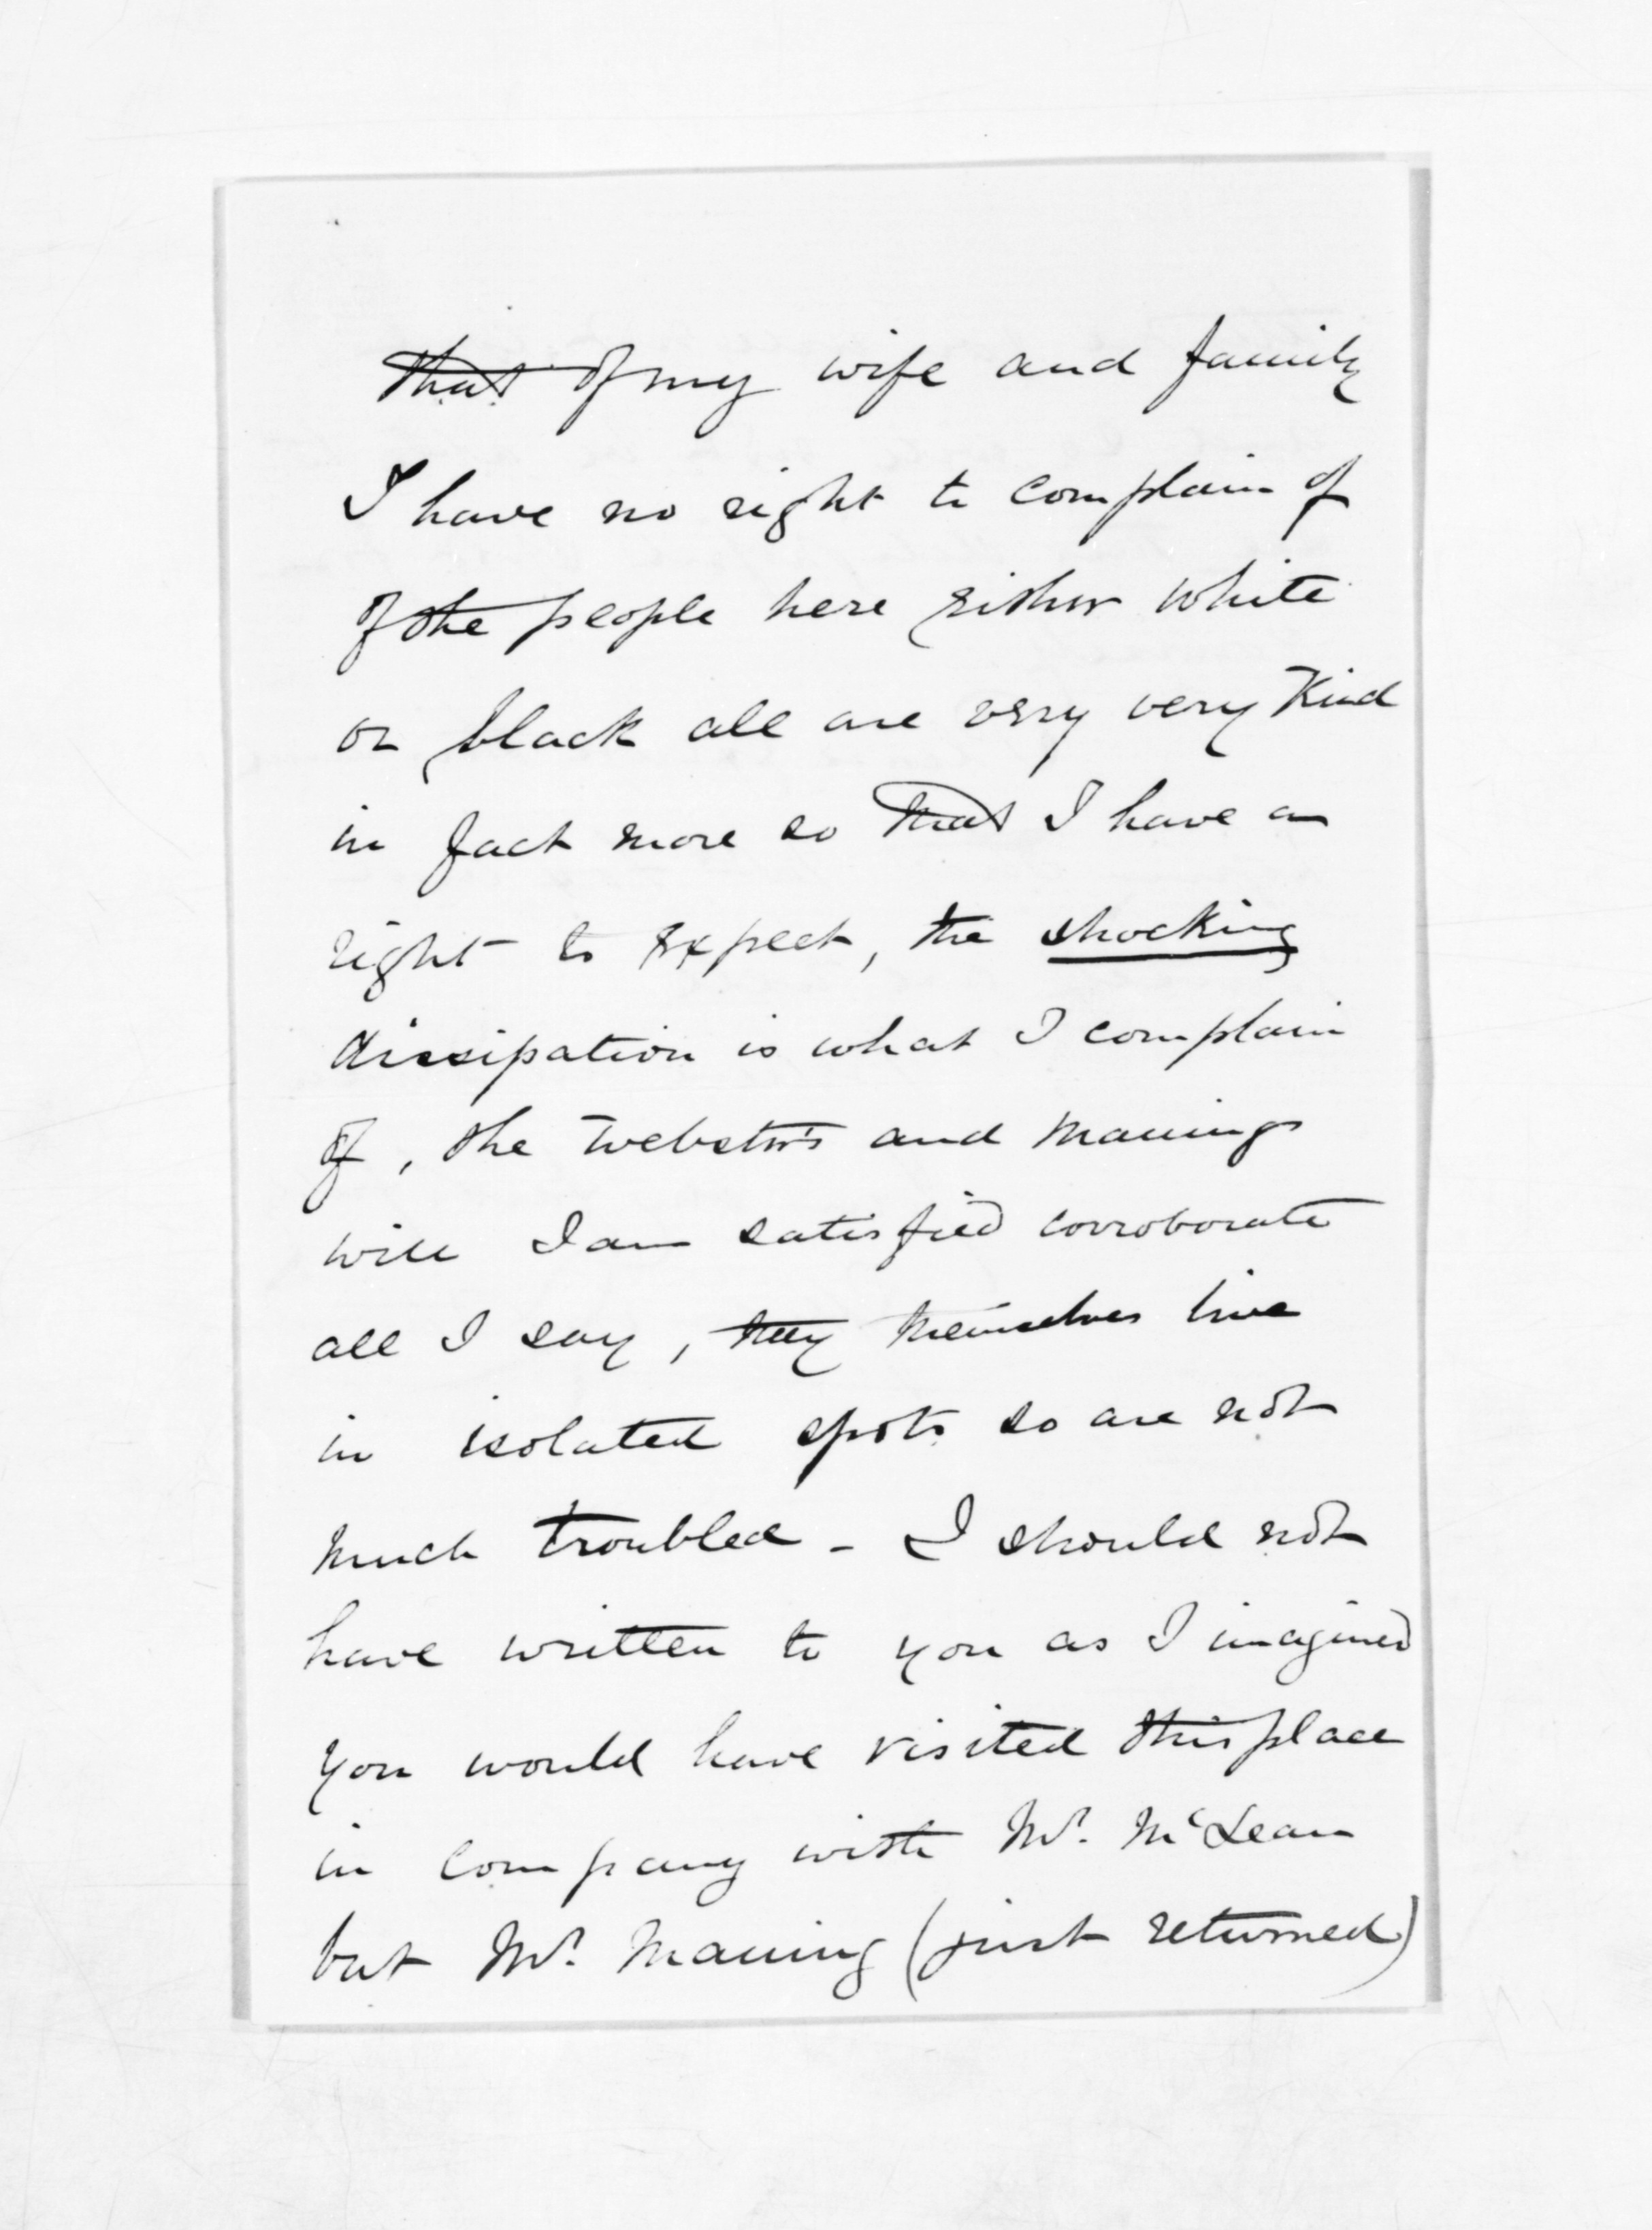 that of my wife and family
I have no right to complain of
of the people here either white
or black all are very very kind
in fact more so that I have a
right to expect, the shocking
dissipation is what I complain
of, the Webster's and Manings
will I am satisfied corroborate
all I say, they themselves live
in isolated spots so are not
much troubled - I should not
have written to you as I imagined
you would have visited this place
in company with Mr. McLean
but Mr. Maning (just returned)